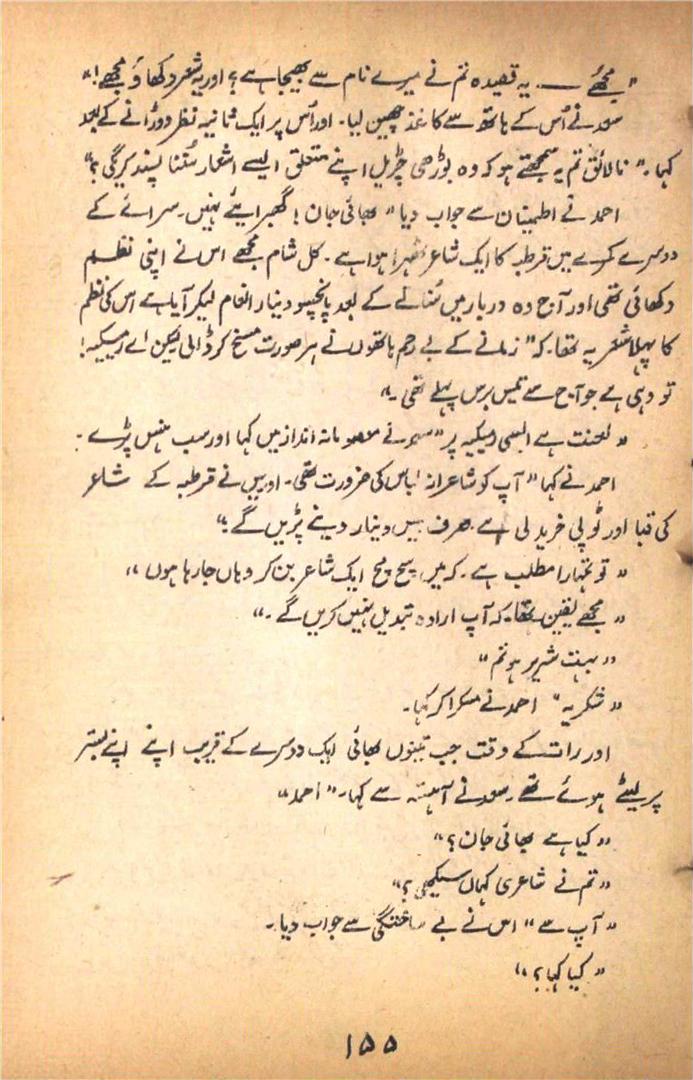 "مجھے ـــ یہ قصیدہ تم نے میرے نام سے بھیجا ہے؟ اور یہ شعر دکھاؤ مجھے!"
سعد نے اُس کے ہاتھ سے کاغذ چھین لیا۔ اور اُس پر ایک ثانیہ نظر دوڑانے کے بعد
کہا۔" نالائق تم یہ سمجھتے ہو کہ وہ بوڑھی چڑیل اپنے متعلق ایسے اشعار سُننا پسند کریگی؟"
احمد نے اطمینان سے جواب دیا" بھائی جان! گھبرایئے نہیں۔ سرائے کے
دوسرے کمرے میں قرطبہ کا ایک شاعر ٹھہرا ہوا ہے۔ کل شام مجھے اس نے اپنی نظم
دکھائی تھی اور آج وہ دربار میں سُنانے کے بعد پانچسو دینار انعام لیکر آیا ہے اس کی نظم
کا پہلا شعر یہ تھا۔ کہ" زمانے کے بے رحم ہاتھوں نے ہر صورت مسخ کر ڈالی لیکن اے رمیکیہ!
تو وہی ہے جو آج سے تیس برس پہلے تھی۔"
"لعنت ہے ایسی رمیکیہ پر" سعد نے معصومانہ انداز میں کہا اور سب ہنس پڑے۔
احمد نے کہا" آپ کو شاعرانہ لباس کی ضرورت تھی۔ اور میں نے قرطبہ کے شاعر
کی قبا اور ٹوپی خرید لی ہے۔ صرف بیس دینار دینے پڑیں گے۔"
"تو تمہارا مطلب ہے۔ کہ میں سچ مچ ایک شاعر بن کر وہاں جا رہا ہوں"
"مجھے یقین تھا۔ کہ آپ ارادہ تبدیل نہیں کریں گے۔"
"بہت شریر ہو تم"
"شکریہ" احمد نے مسکرا کر کہا۔
اور رات کے وقت جب تینوں بھائی ایک دوسرے کے قریب اپنے اپنے بستر
پر لیٹے ہوئے تھے۔ سعد نے آہستہ سے کہا۔" احمد"
"کیا ہے بھائی جان؟"
"تم نے شاعری کہاں سیکھی؟"
"آپ سے" اس نے بے ساختگی سے جواب دیا۔
"کیا کہا؟"
۱۵۵